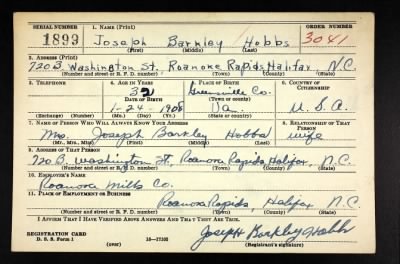 SERIAL NUMBER 1. NAME (Print) ORDER NUMBER
1899 Joseph Barkley Hobbs 3041
(First) (Middle) (Last)
2. ADDRESS (Print)
720 B. Washington St. Roanoke Rapids Halifax N.C.
(Number and street or R. F. D. number) (Town) (County) (State)
3. TELEPHONE 4. AGE IN YEARS 5. PLACE OF BIRTH 6. COUNTRY OF CITIZENSHIP
32 Greensville Co.
DATE OF BIRTH (Town or county)
1-24-1908 Va. U.S.A.
(Exchange) (Number) (Mo.) (Day) (Yr.) (State or country)
7. NAME OF PERSON WHO WILL ALWAYS KNOW YOUR ADDRESS 8. RELATIONSHIP OF THAT PERSON
Mrs. Joseph Barkley Hobbs wife
(Mr., Mrs., Miss) (First) (Middle) (Last)
9. ADDRESS OF THAT PERSON
720 B. Washington St, Roanoke Rapids, Halifax, N.C.
(Number and street or R. F. D. number) (Town) (County) (State)
10. EMPLOYER'S NAME
Roanoke Mills Co.
11. PLACE OF EMPLOYMENT OR BUSINESS
Roanoke Rapids Halifax N.C.
(Number and street or R. F. D. number) (Town) (County) (State)
I AFFIRM THAT I HAVE VERIFIED ABOVE ANSWERS AND THAT THEY ARE TRUE.
Joseph Barkley Hobbs
REGISTRATION CARD
D. S. S. Form 1 (over) 16-17105 (Registrant's signature)